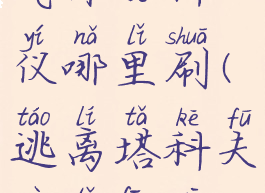 yí nǎ lǐ shuā
仪哪里刷(
táo lí tǎ kē fū
逃离塔科夫